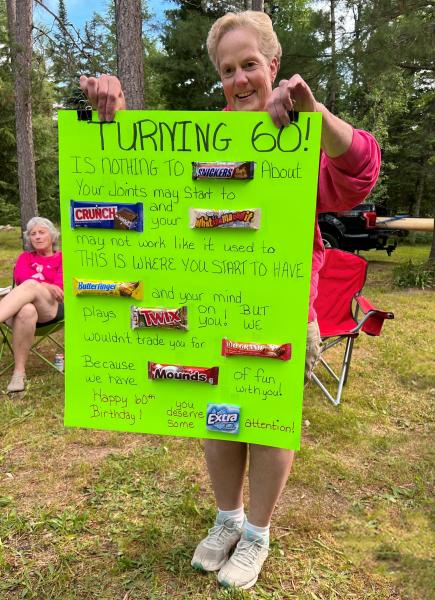 TURNING 60!
IS NOTHING TO SNICKERS About
Your Joints may Start to
CRUNCH and your Whatchamacallit?
may not work like it used to
THIS IS WHERE YOU START TO HAVE
Butterfinger and your mind
plays TWIX ON YOU! BUT WE
wouldn't trade you for 100 GRAND
Because we have Mounds of fun with you!
Happy 60th Birthday! you deserve some Extra attention!